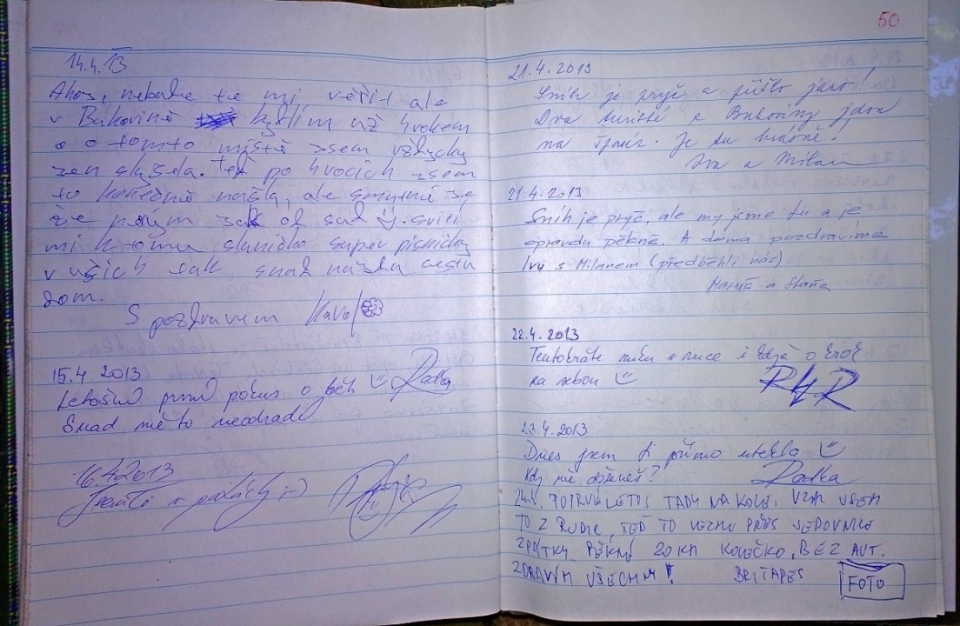 14.4.13
Ahoj, nebude te mi věřit ale
v Bukovině bydlím už 4 rokem
a o tomto místě jsem vždycky
jen slyšela. Teď po 4 rocích jsem
to konečně našla, ale
ze zak od sud jí. svítí
mi k tomu sluníčko super písničky
v uších tak snad najdu cestu
dom.
S pozdravem
15.4 2013
Letošní první pokus o běh Radka
Snad mě to neodradí
16.4.2013
50
21.4.2013
Sníh je pryč a přišlo jaro!
Dva turisté z Bukoviny jdou
na špacír. Je tu krásně.
Iva a Milan
21.4.2013
Sníh je pryč, ale my jsme tu a je
opravdu pěkně. A doma pozdravíme
Ivu s Milanem (předběhli nás).
a Staňa
22.4.2013
Tentokráte v ruce i
za sebou
23.4.2013
Dnes jsem ti přímo utekla
Kdy mě doženeš? Radka
24.4. POPRVÉ LETOS TADY NA KOLE, VZAL JSEM
TO Z RUDIC, TEĎ TO VEZMU PŘES JEDOVNICE
ZPÁTKY. PĚKNÝ 20 KM KOLEČKO, BEZ AUT.
ZDRAVÍM VŠECHNY! BRITAPES
FOTO